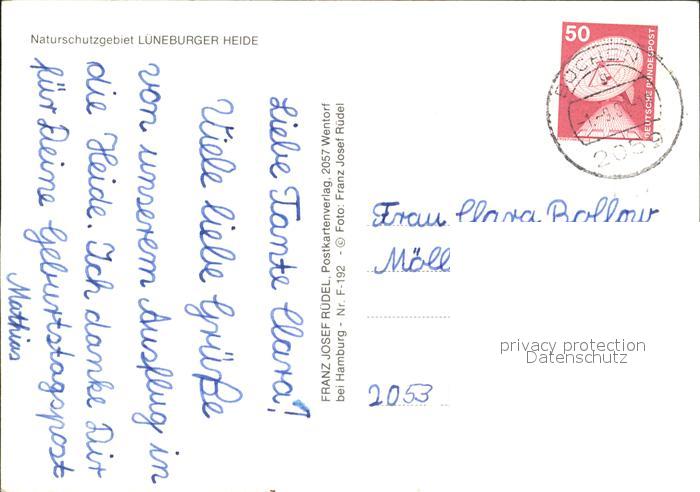 Naturschutzgebiet LÜNEBURGER HEIDE
Liebe Tante Clara!
Viele liebe Grüße
von unserem Ausflug in
die Heide. Ich danke Dir
für Deine Geburtstagspost
Mathias
FRANZ JOSEF RÜDEL, Postkartenverlag, 2057 Wentorf
bei Hamburg - Nr. F-192 - © Foto: Franz Josef Rüdel
50
DEUTSCHE BUNDESPOST
BÜCHEN
2059
Frau Clara Bollow
Möll
2053
privacy protection
Datenschutz